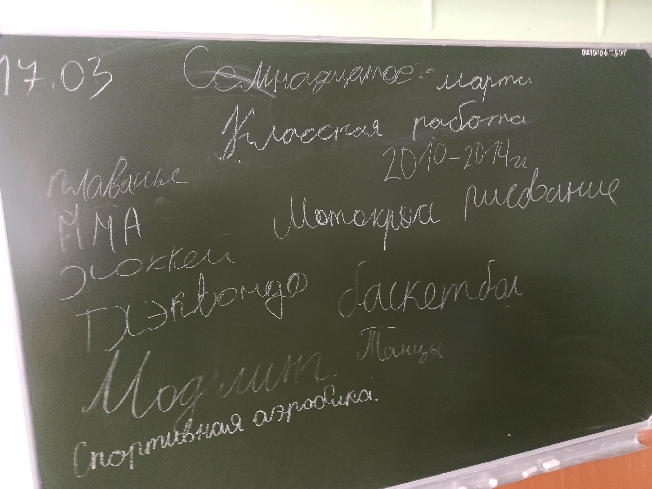 17.03 Семнадцатое марта
Классная работа
2010-2014г
плаванье
ММА
Мотокросс рисование
Хоккей
Тхэквондо баскетбол
Танцы
Модлинг
Спортивная аэробика.